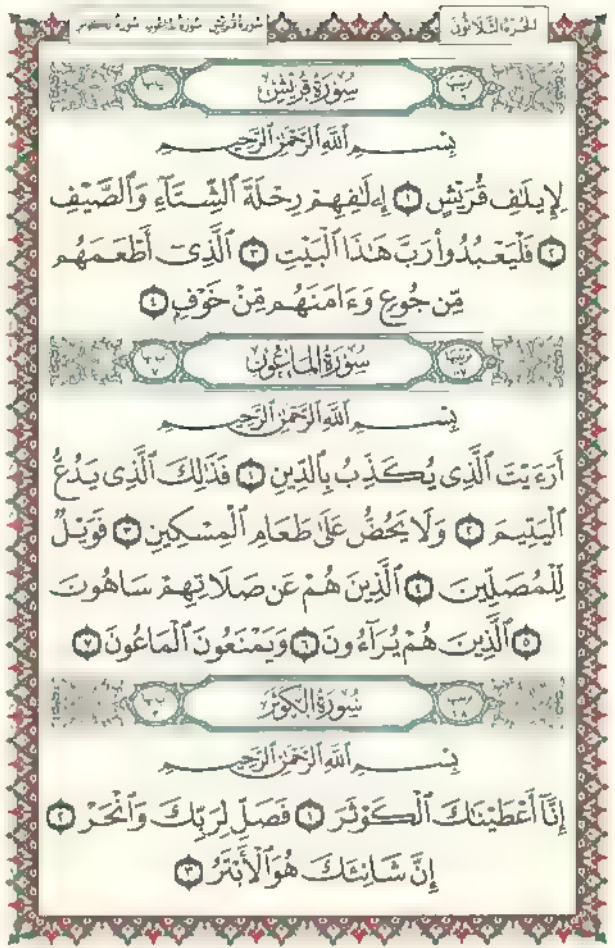 الجزء الثلاثون
سورة قريش سورة الماعون سورة الكوثر
سُورَةُ قُرَيْشٍ
بِسْمِ ٱللَّهِ ٱلرَّحْمَٰنِ ٱلرَّحِيمِ
لِإِيلَٰفِ قُرَيْشٍ ١ إِۦلَٰفِهِمْ رِحْلَةَ ٱلشِّتَآءِ وَٱلصَّيْفِ
٢ فَلْيَعْبُدُوا۟ رَبَّ هَٰذَا ٱلْبَيْتِ ٣ ٱلَّذِىٓ أَطْعَمَهُم
مِّن جُوعٍ وَءَامَنَهُم مِّنْ خَوْفٍ ٤
سُورَةُ المَاعُونِ
بِسْمِ ٱللَّهِ ٱلرَّحْمَٰنِ ٱلرَّحِيمِ
أَرَءَيْتَ ٱلَّذِى يُكَذِّبُ بِٱلدِّينِ ١ فَذَٰلِكَ ٱلَّذِى يَدُعُّ
ٱلْيَتِيمَ ٢ وَلَا يَحُضُّ عَلَىٰ طَعَامِ ٱلْمِسْكِينِ ٣ فَوَيْلٌ
لِّلْمُصَلِّينَ ٤ ٱلَّذِينَ هُمْ عَن صَلَاتِهِمْ سَاهُونَ
٥ ٱلَّذِينَ هُمْ يُرَآءُونَ ٦ وَيَمْنَعُونَ ٱلْمَاعُونَ ٧
سُورَةُ الكَوْثَرِ
بِسْمِ ٱللَّهِ ٱلرَّحْمَٰنِ ٱلرَّحِيمِ
إِنَّآ أَعْطَيْنَٰكَ ٱلْكَوْثَرَ ١ فَصَلِّ لِرَبِّكَ وَٱنْحَرْ ٢
إِنَّ شَانِئَكَ هُوَ ٱلْأَبْتَرُ ٣